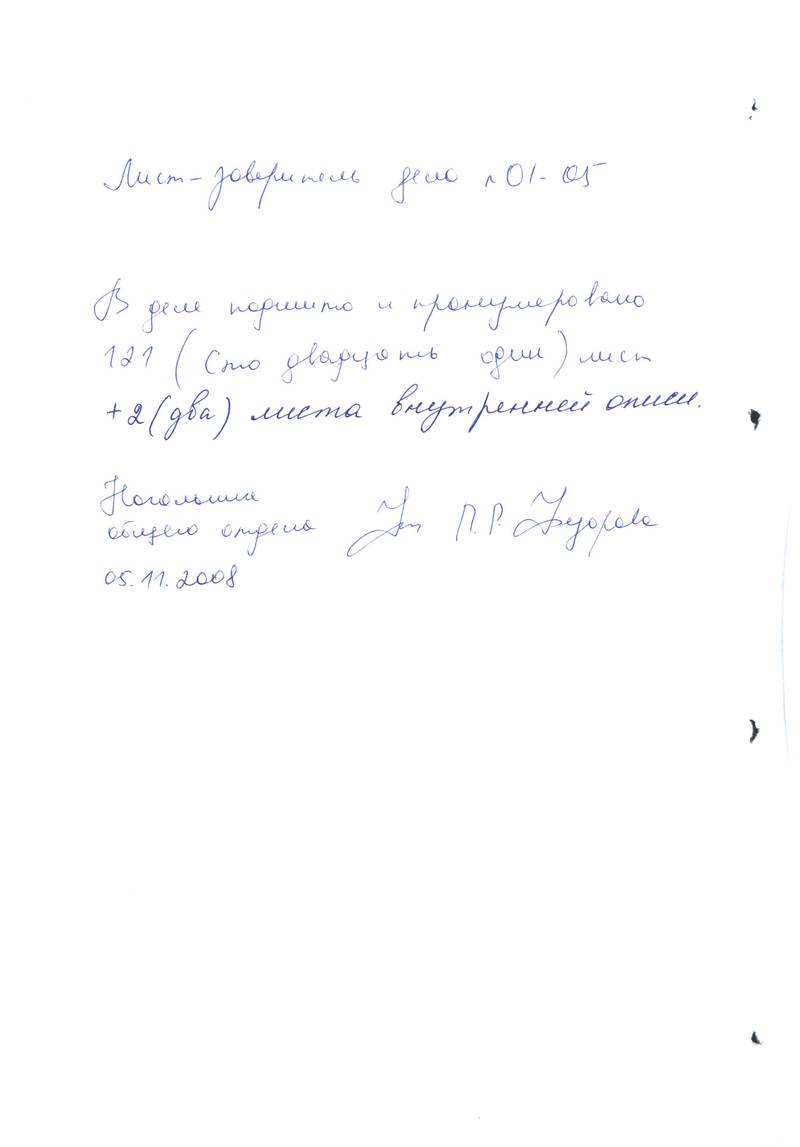 Лист-заверитель дела №01-05
В деле подшито и пронумеровано
121 (Сто двадцать один) лист
+2 (два) листа внутренней описи.
Начальник
общего отдела П.Р.
05.11.2008